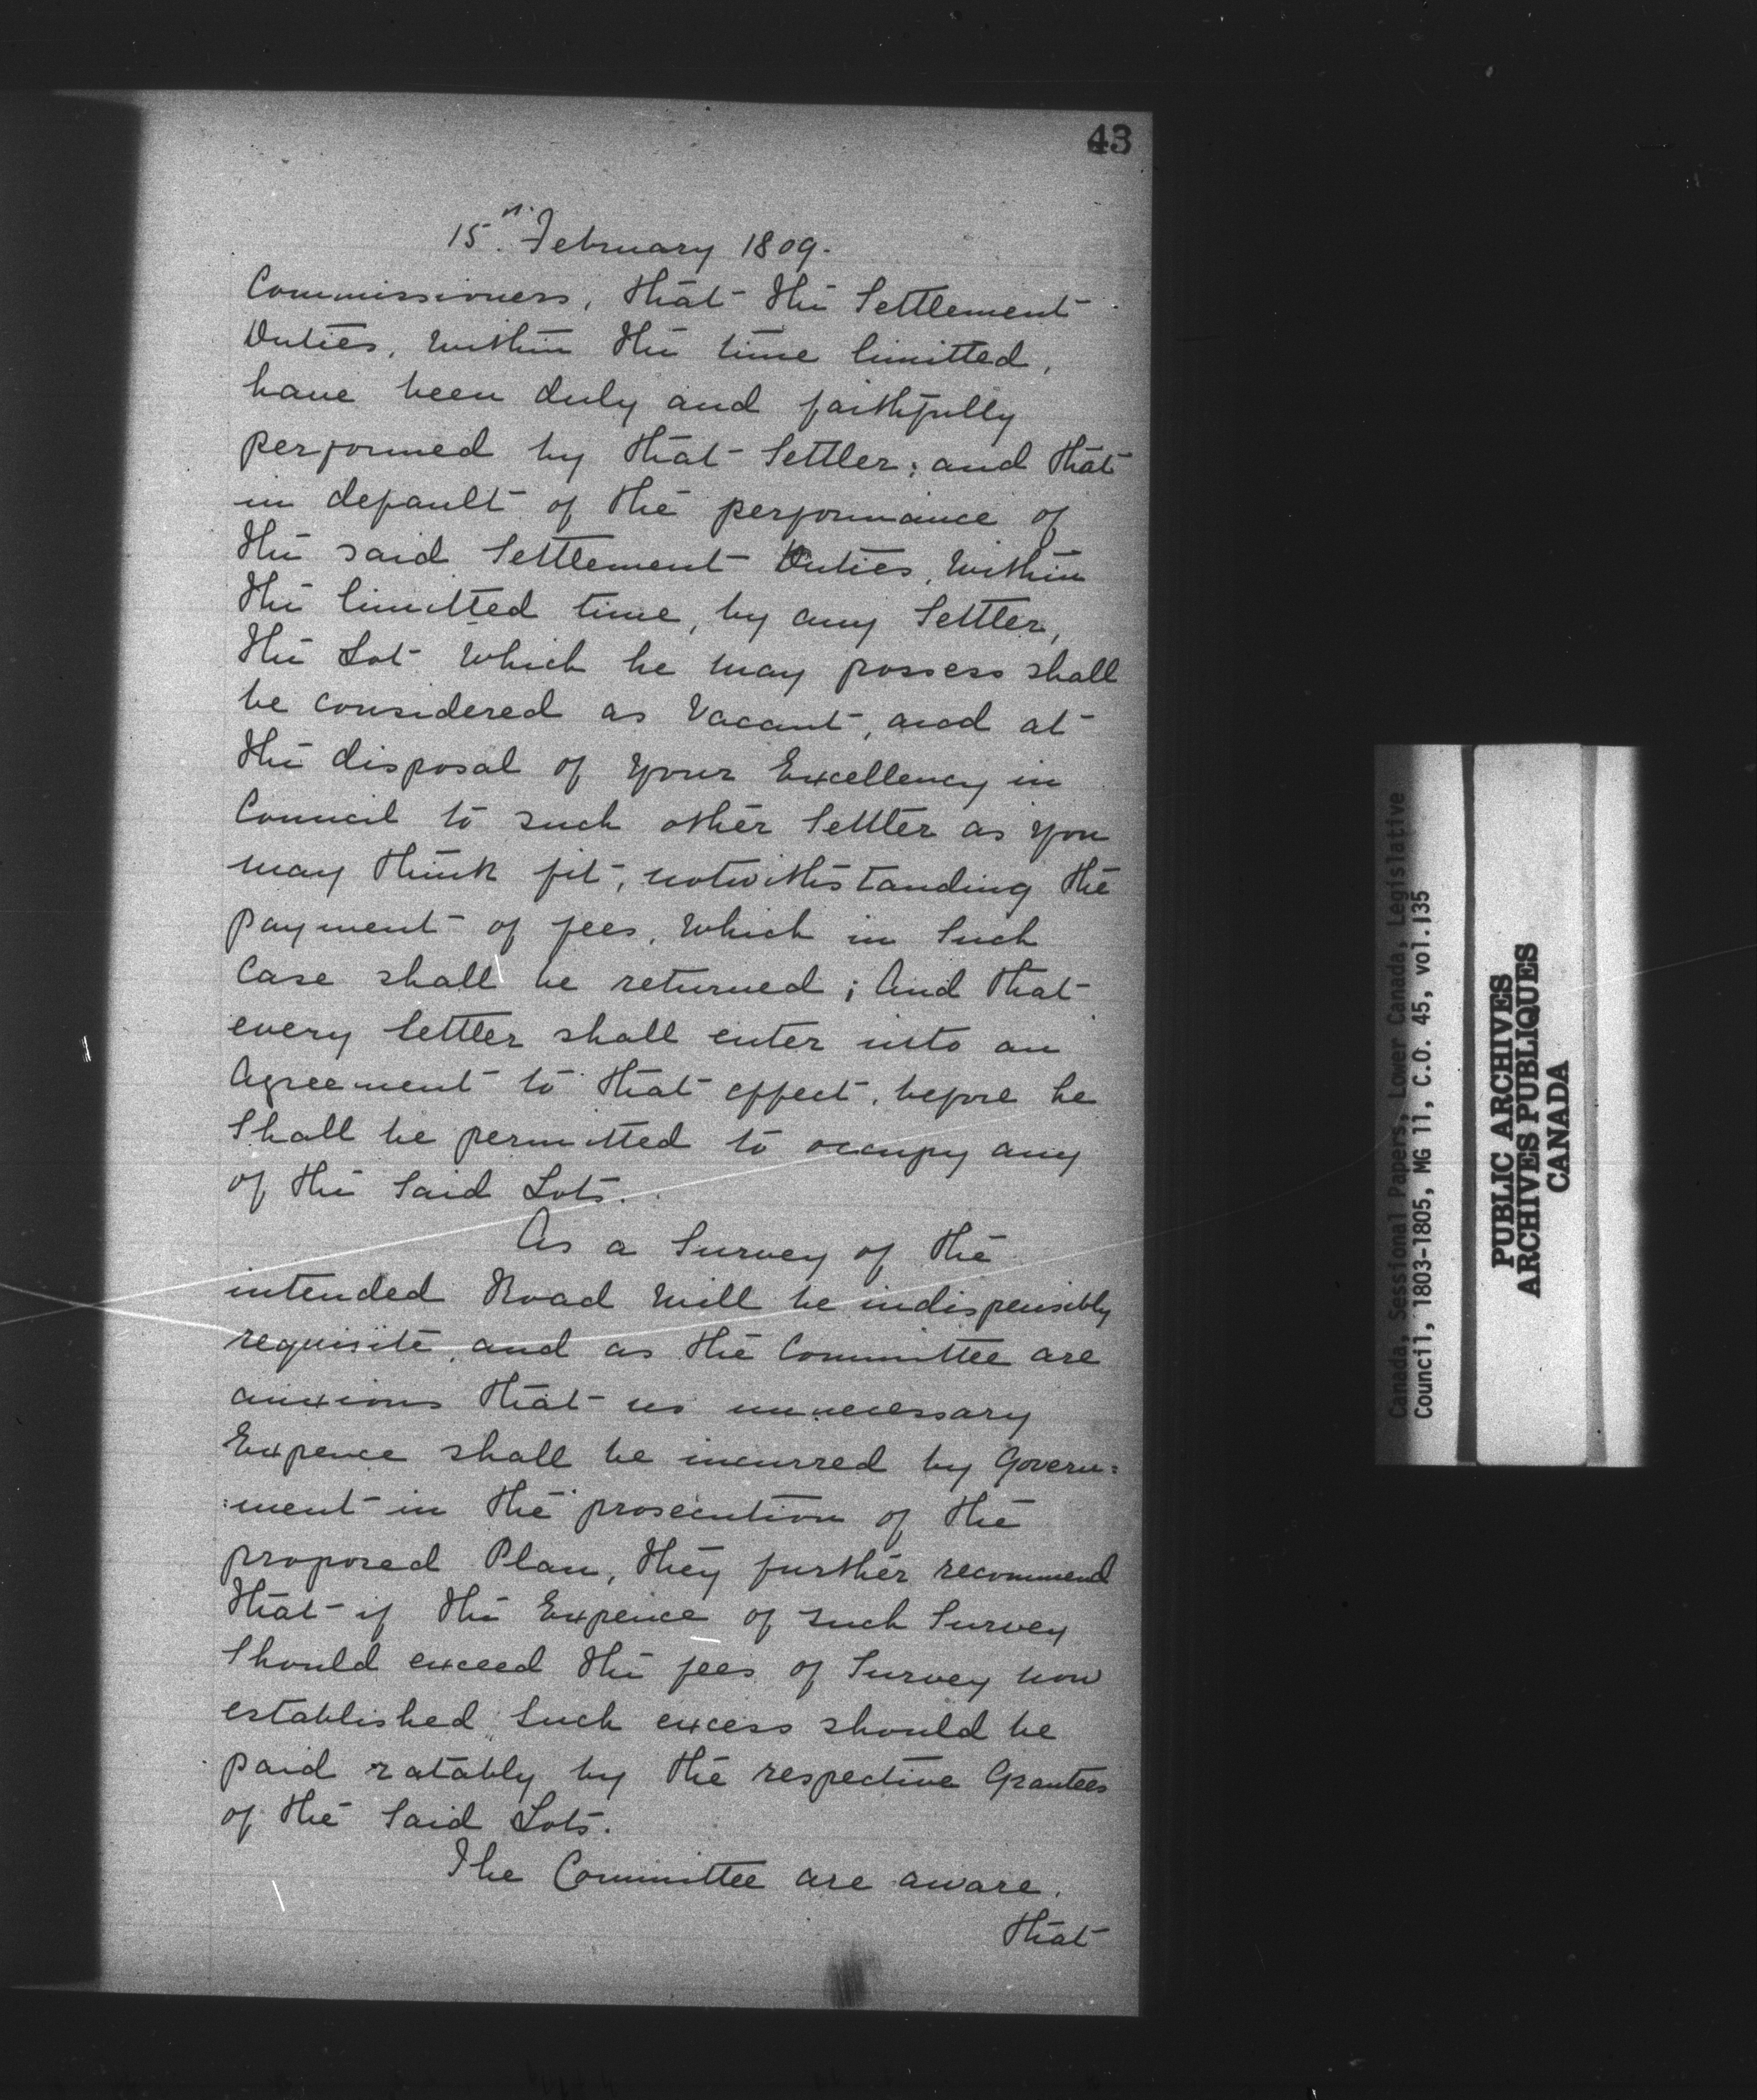 43
15th. February 1809.
Commissioners, that the Settlement
Duties, within the time limitted,
have been duly and faithfully
performed by that Settler; and that
in default of the performance of
the said Settlement Duties, within
the limitted time, by any Settler,
the Lot which he may possess shall
be considered as Vacant, and at
the disposal of your Excellency in
Council to such other Settler as you
may think fit, notwithstanding the
payment of fees, which in Such
Case shall be returned; And that
every Settler shall enter into an
Agreement to that effect, before he
Shall be permitted to occupy any
of the Said Lots.
As a Survey of the
intended Road will be indispensibly
requisite, and as the Committee are
anxious that no unnecessary
Expence shall be incurred by Govern:
:ment in the prosecution of the
proposed Plan, they further recommend
that if the Expence of such Survey
Should exceed the fees of Survey now
established, Such excess should be
paid ratably by the respective Grantees
of the Said Lots.
The Committee are aware.
that
Canada, Sessional Papers, Lower Canada, Legislative
Council, 1803-1805, MG 11, C.O. 45, vol.135
PUBLIC ARCHIVES
ARCHIVES PUBLIQUES
CANADA